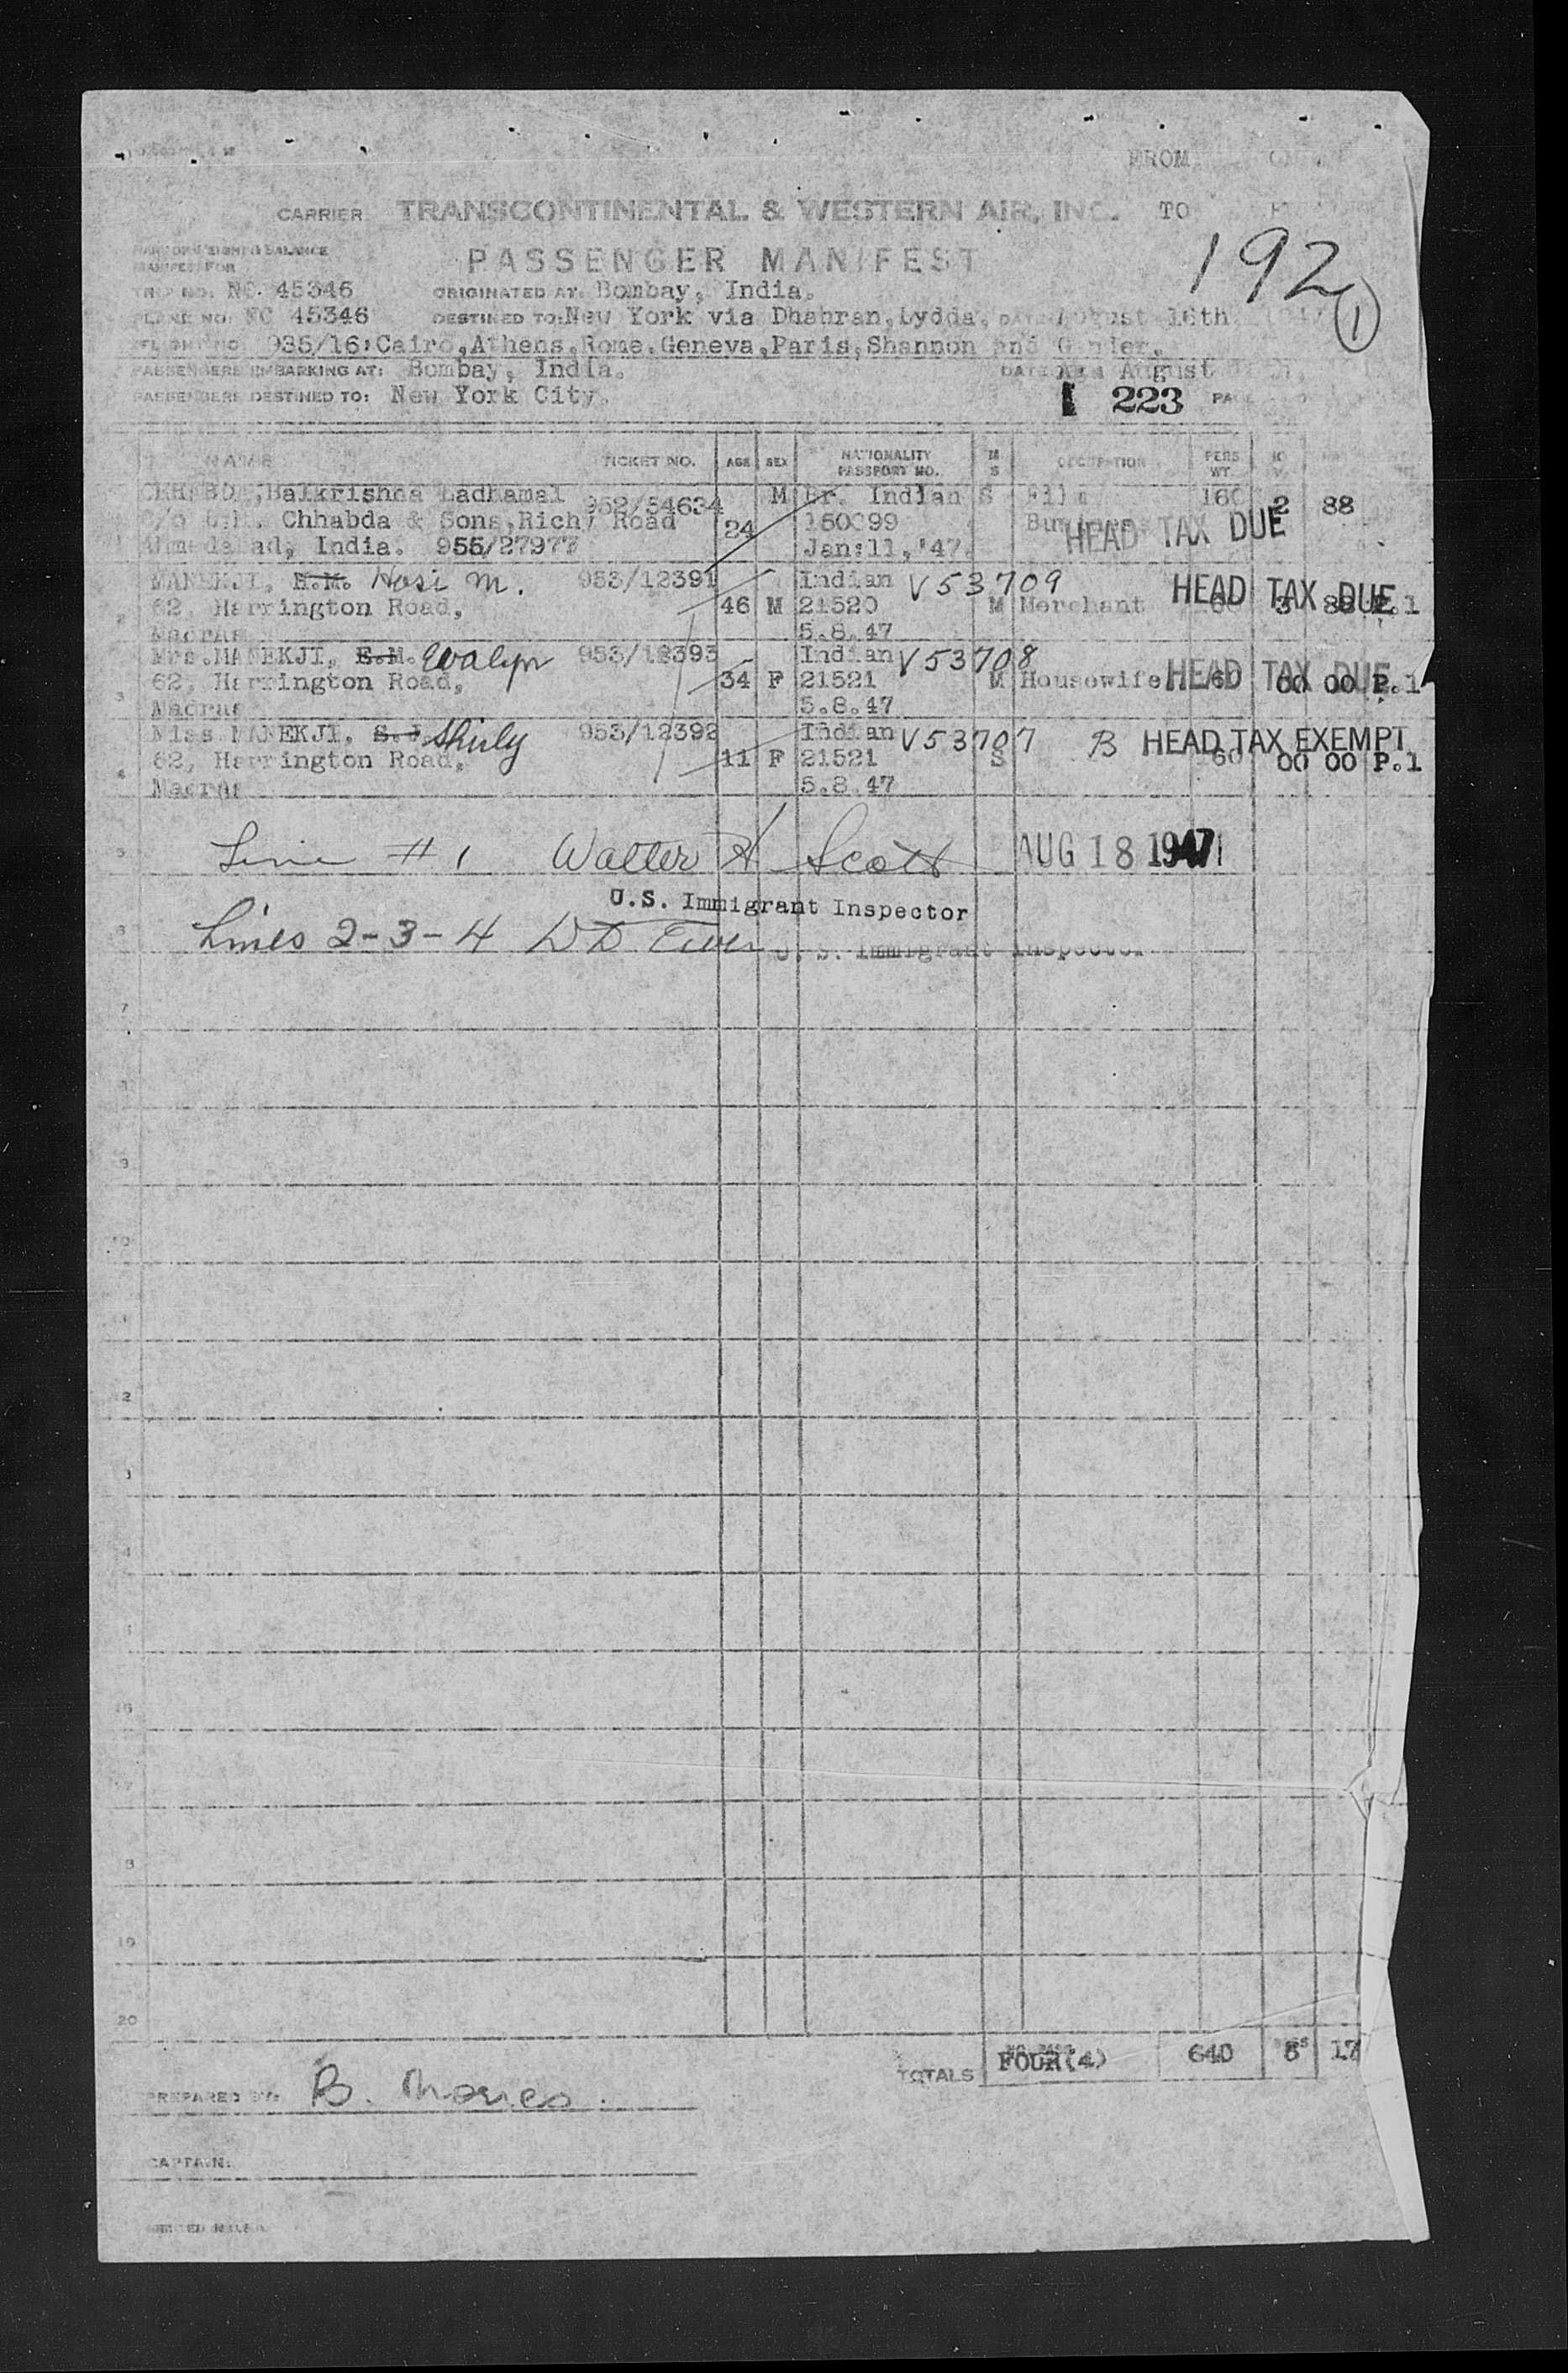 FROM
CARRIER TRANSCONTINENTAL & WESTERN AIR, INC. TO
PASSENGER MANIFEST
192
1
TRIP NO. NC 45346 ORIGINATED AT: Bombay, India.
PLANE NO. NC 45346 DESTINED TO: New York via Dhahran, Lydda, DATE August 16th
FLIGHT NO. 935/16: Cairo, Athens, Rome, Geneva, Paris, Shannon and Gander.
PASSENGERS EMBARKING AT: Bombay, India. DATE August
PASSENGERS DESTINED TO: New York City.
223
NAME TICKET NO. AGE SEX NATIONALITY PASSPORT NO. M S OCCUPATION PERS WT.
Balkrishna Ladhamal 952/54634 M Br. Indian S Film 160 2 88
Chhabda & Sons, Richy Road 24 150099 HEAD TAX DUE
Ahmedabad, India. 955/27977 Jan:11,'47.
MANEKJI, H.M. Hosi M. 953/12391 Indian V53709 HEAD TAX DUE
62, Harrington Road, 46 M 21520 M Merchant 3 88 P.1
Madras 5.8.47
Mrs. MANEKJI, E.M. Evalyn 953/12393 Indian V53708 HEAD TAX DUE
62, Harrington Road, 34 F 21521 M Housewife 00 00 P.1
Madras 5.8.47
Miss MANEKJI, Shirly 953/12392 Indian V53707 B HEAD TAX EXEMPT
62, Harrington Road, 11 F 21521 S 60 00 00 P.1
Madras 5.8.47
Line #1 Walter H Scott AUG 18 1947
U.S. Immigrant Inspector
Lines 2-3-4
U. S. Immigrant Inspector
7
9
10
2
4
16
7
19
20
TOTALS FOUR(4) 640 5 17
PREPARED BY: B.
CAPTAIN: